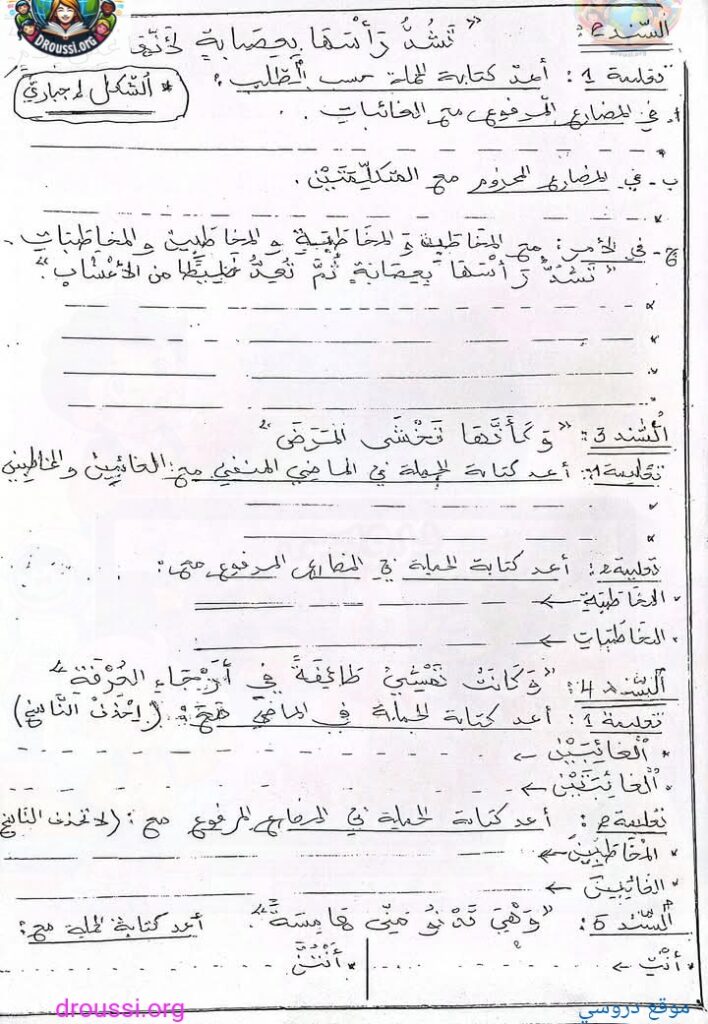 DROUSSI.ORG
السّند 2: "تَشُدُّ رَأْسَهَا بِعِصَابَةٍ لِأَنَّهَا
تعليمة 1: أعدْ كتابة الجملة حسب الطلب:
* الشّكل إجباريّ
أ- في المضارع المرفوع مع الغائبات.
ب- في المضارع المجزوم مع المتكلّمَتَيْن.
ج- في الأمر: مع المخاطب والمخاطبة والمخاطبين والمخاطبات.
"تَشُدُّ رَأْسَهَا بِعِصَابَةٍ ثُمَّ تُعِدُّ خَلِيطًا مِنَ الأَعْشَابِ"
السّند 3: "وَكَأَنَّهَا تَخْشَى المَرَضَ"
تعليمة 1: أعد كتابة الجملة في الماضي المنفي مع: الغائبين والمخاطبين
تعليمة 2: أعد كتابة الجملة في المضارع المرفوع مع:
* المخاطبة ←
* المخاطبات ←
السّند 4: "وَكَانَتْ تَمْشِي طَائِفَةً فِي أَرْجَاءِ الغُرْفَةِ"
تعليمة 1: أعد كتابة الجملة في الماضي مع: (اِحْذَفْ النَّاسِخ)
* الْغائِبَيْنِ ←
* الْغائِبَتَيْنِ ←
تعليمة 2: أعد كتابة الجملة في المضارع المرفوع مع: (لا تحذف الناسخ
* المخَاطَبِينَ ←
* الغائبين ←
السّند 5: "وَهْيَ تَدْنُو مِنِّي هَامِسَةً". أعد كتابة الجملة مع:
* أنْتِ ← * أَنْتُنَّ
موقع دروسي droussi.org